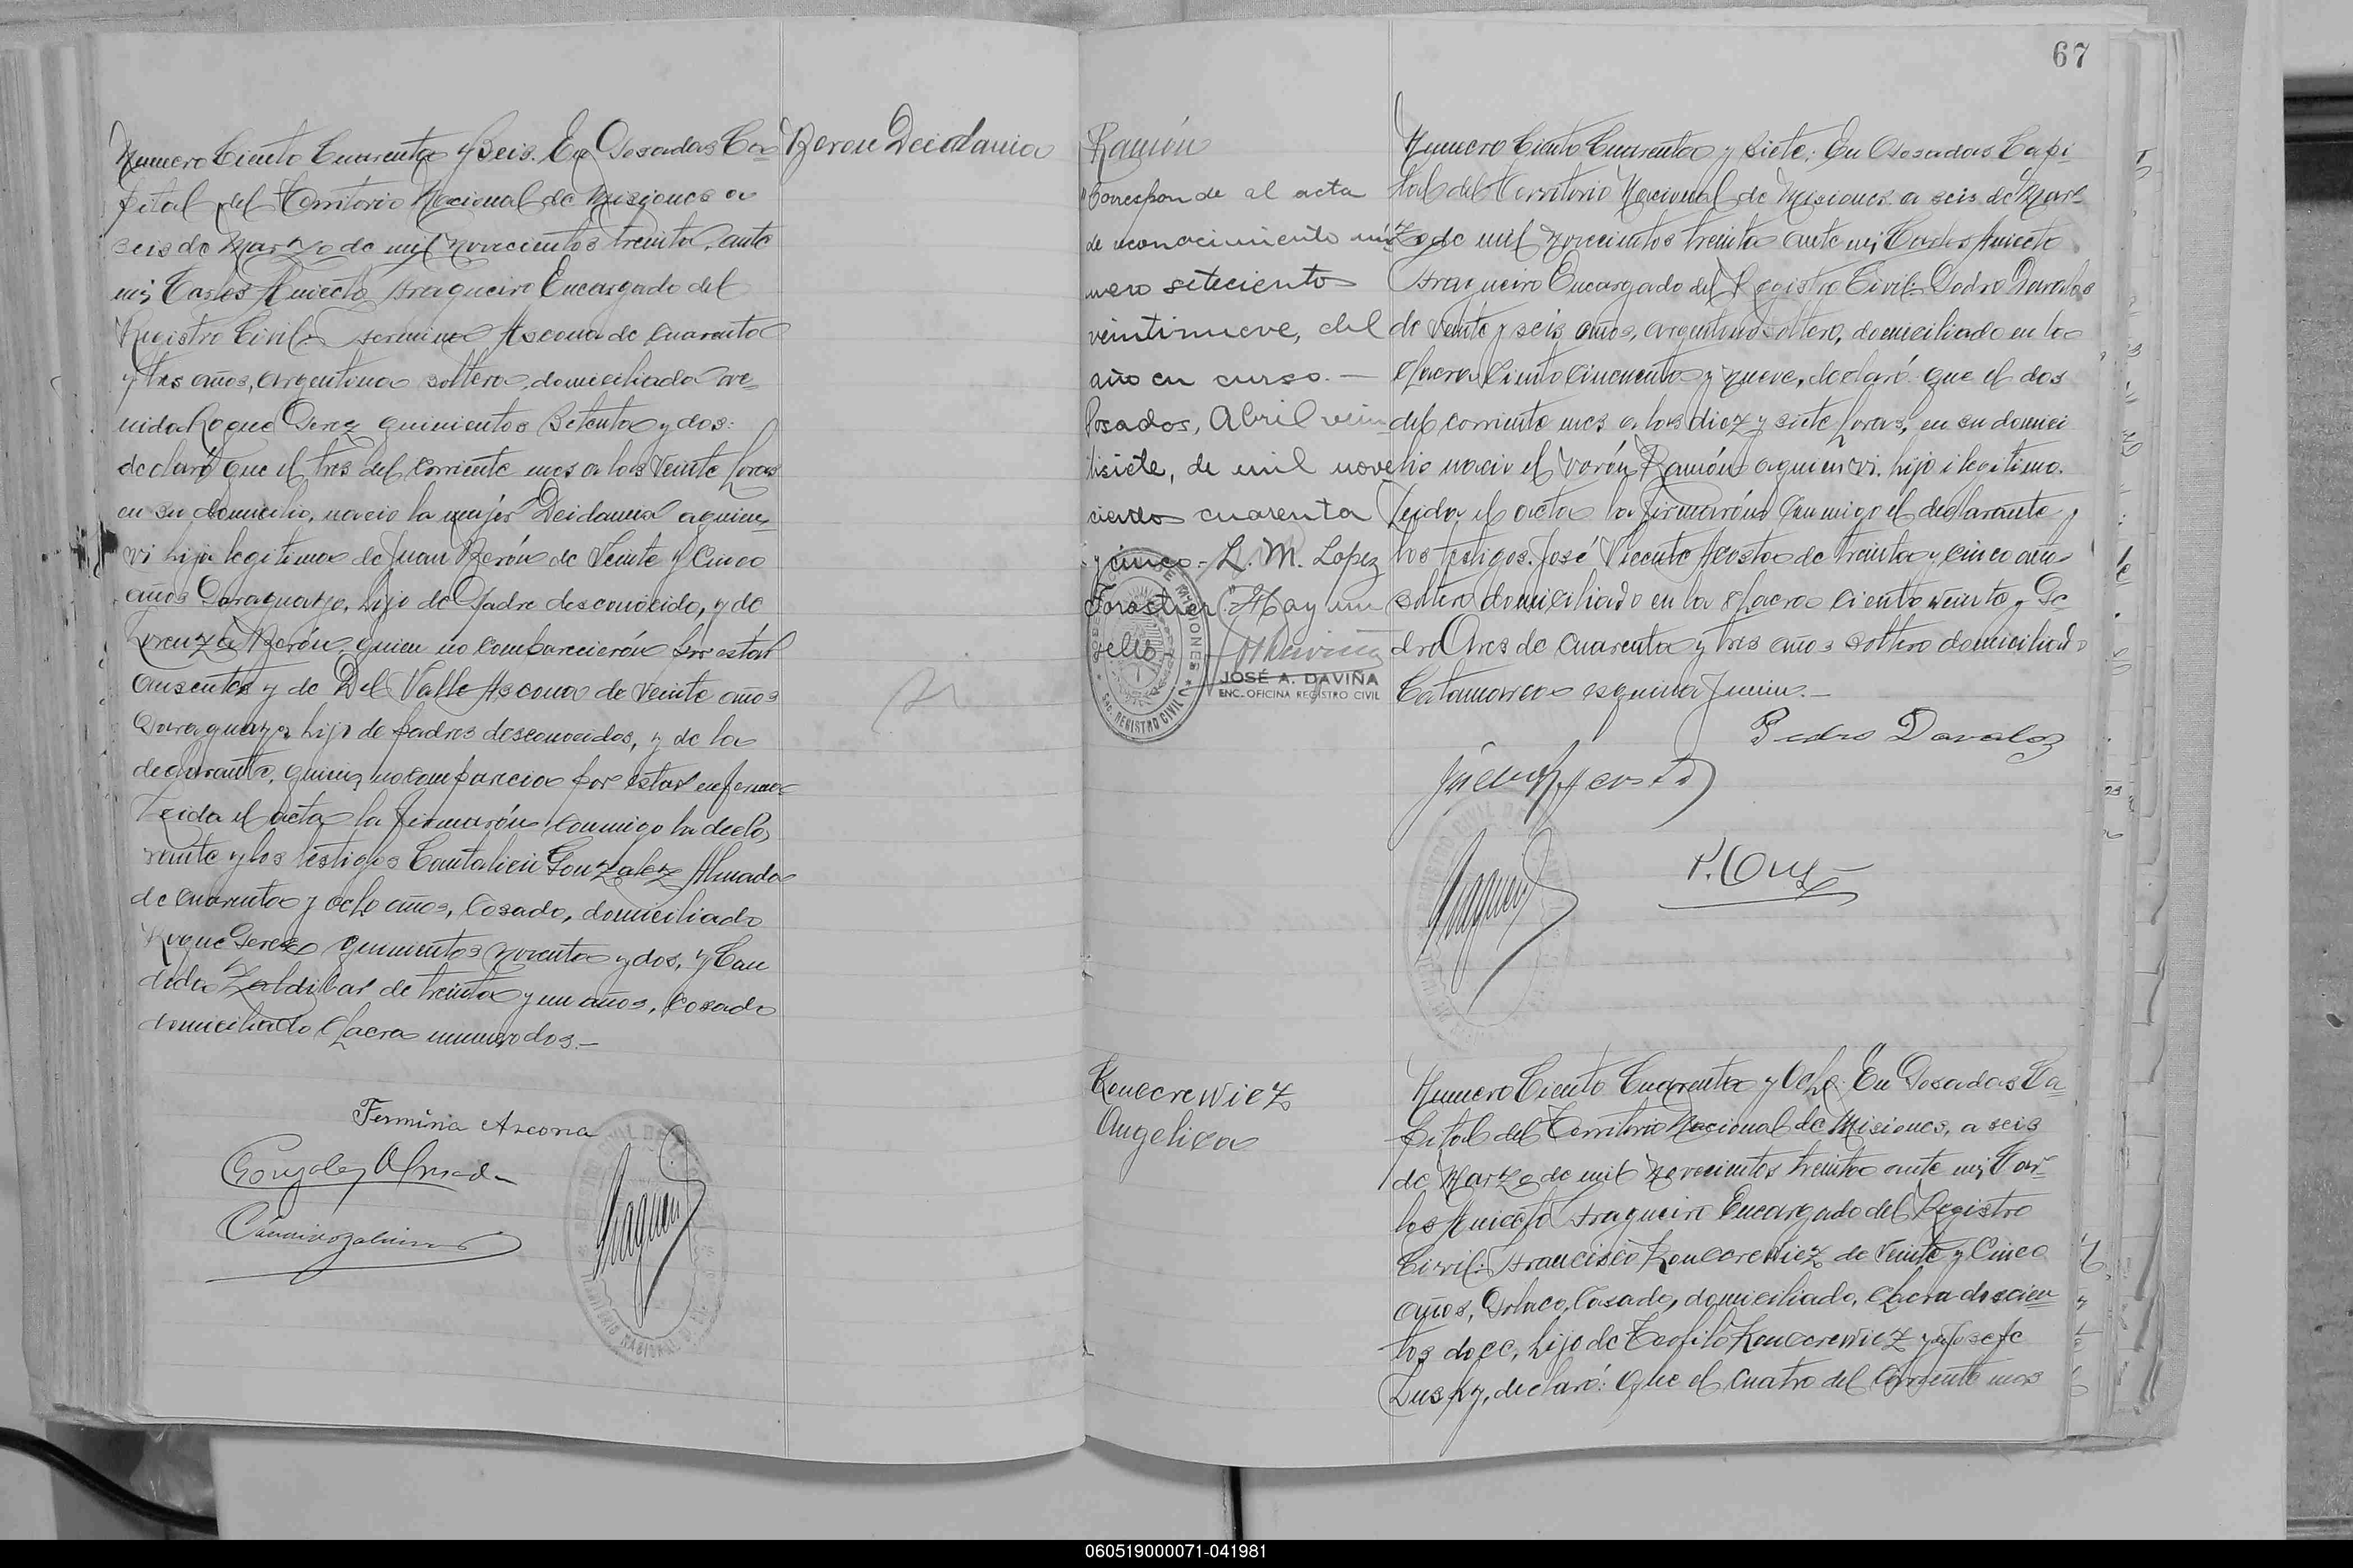 Numero Ciento Cuarenta y Seis. En Posadas Ca-
pital del Territorio Nacional de Misiones a
seis de Marzo de mil novecientos treinta, ante
mi, Carlos Aniceto Fragueiro Encargado del
Registro Civil: Fermina Ascona de cuarenta
y tres años, argentina soltera, domiciliada ave-
nida Roque Perez quinientos setenta y dos:
declaró que el tres del corriente mes a las veinte horas
en su domicilio, nacio la mujer Deidamia a quien
vi hija legitima de Juan Berón de Veinte y Cinco
años Paraguayo, hijo de Padre desconocido, y de
Lorenza Berón, quien no comparecierón por estar
ausente y de Del Valle Ascona de veinte años
Paraguaya hija de padres desconocidos, y de la
declarante, quien no comparecia por estar enferma
Leida el acta la firmarón conmigo la decla
rante y los testigos Cantalicio Gonzalez Almada
de cuarenta y ocho años, Casado, domiciliado
Roque Perez quinientos noventa y dos, y Can
dido Zaldibar de treinta y un años, Casado
domiciliado Chacra numero dos.—
Fermina Ascona
Gonzalez Almada
Beron Deidamia
67
Ramón
"Corresponde al acta
de reconocimiento nú
mero setecientos
veintinueve, del
año en curso.—
Posadas, Abril vein
tisiete, de mil nove
cientos cuarenta
y cinco.- L. M. Lopez
Forastier. "Hay un
sello
JOSÉ A. DAVIÑA
ENC. OFICINA REGISTRO CIVIL
REGISTRO CIVIL
Numero Ciento Cuarenta y Siete: En Posadas Capi
tal del Territorio Nacional de Misiones a seis de Mar-
zo de mil novecientos treinta ante mi, Carlos Aniceto
Fragueiro Encargado del Registro Civil: Pedro Davalos
de veinte y seis años, argentino soltero, domiciliado en la
Chacra Ciento Cincuenta y nueve, declaró: que el dos
del corriente mes a las diez y siete horas, en su domici
lio nacio el varón Ramón a quien vi. hijo ilegitimo.
Leida el acta la firmarón conmigo el declarante y
los testigos. José Vicente Acosta de treinta y cinco años
soltero domiciliado en la Chacra Ciento veinte y Pe
dro Ores de cuarenta y tres años soltero domiciliado
Catamarca esquina Junin.—
Pedro Davaloz
Kenecrewiez
Angelica
Numero Ciento Cuarenta y Ocho: En Posadas Ca-
pital del Territorio Nacional de Misiones, a seis
de Marzo de mil novecientos treinta ante mi, Car-
los Aniceto Fragueiro Encargado del Registro
Civil: Francisco Kenecrewiez de Veinte y Cinco
años, Polaco, Casado, domiciliado, Chacra doscien
tos doce, hijo de Teofilo Kenecrewiez y de Josefa
declaró: Que el cuatro del corriente mes
060519000071-041981